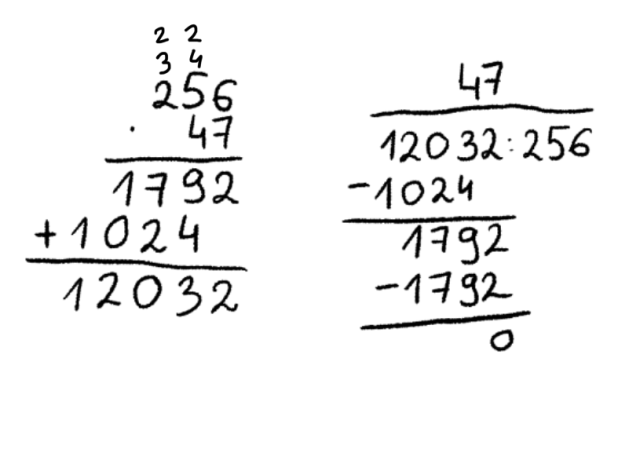 2 2
3 4
256
· 47
1792
+1024
12032
47
12032:256
-1024
1792
-1792
0